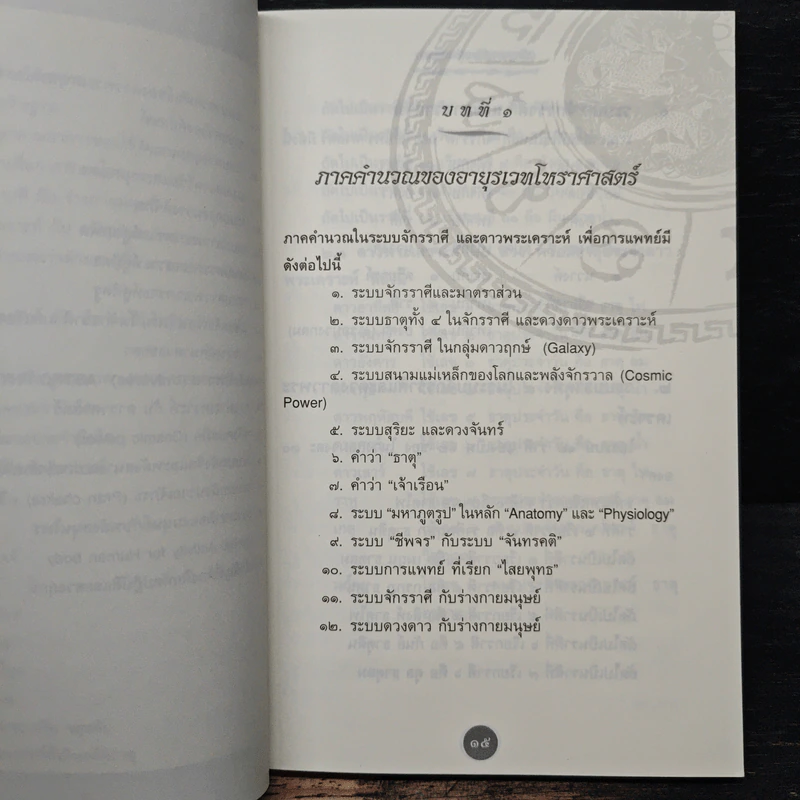 บทที่ ๑
ภาคคำนวณของอายุรเวทโหราศาสตร์
ภาคคำนวณในระบบจักรราศี และดาวพระเคราะห์ เพื่อการแพทย์มี
ดังต่อไปนี้
๑. ระบบจักรราศีและมาตราส่วน
๒. ระบบธาตุทั้ง ๔ ในจักรราศี และดวงดาวพระเคราะห์
๓. ระบบจักรราศี ในกลุ่มดาวฤกษ์ (Galaxy)
๔. ระบบสนามแม่เหล็กของโลกและพลังจักรวาล (Cosmic
Power)
๕. ระบบสุริยะ และดวงจันทร์
๖. คำว่า “ธาตุ”
๗. คำว่า “เจ้าเรือน”
๘. ระบบ “มหาภูตรูป” ในหลัก “Anatomy” และ “Physiology”
๙. ระบบ “ชีพจร” กับระบบ “จันทรคติ”
๑๐. ระบบการแพทย์ ที่เรียก “ไสยพุทธ”
๑๑. ระบบจักรราศี กับร่างกายมนุษย์
๑๒. ระบบดวงดาว กับร่างกายมนุษย์
๑๕